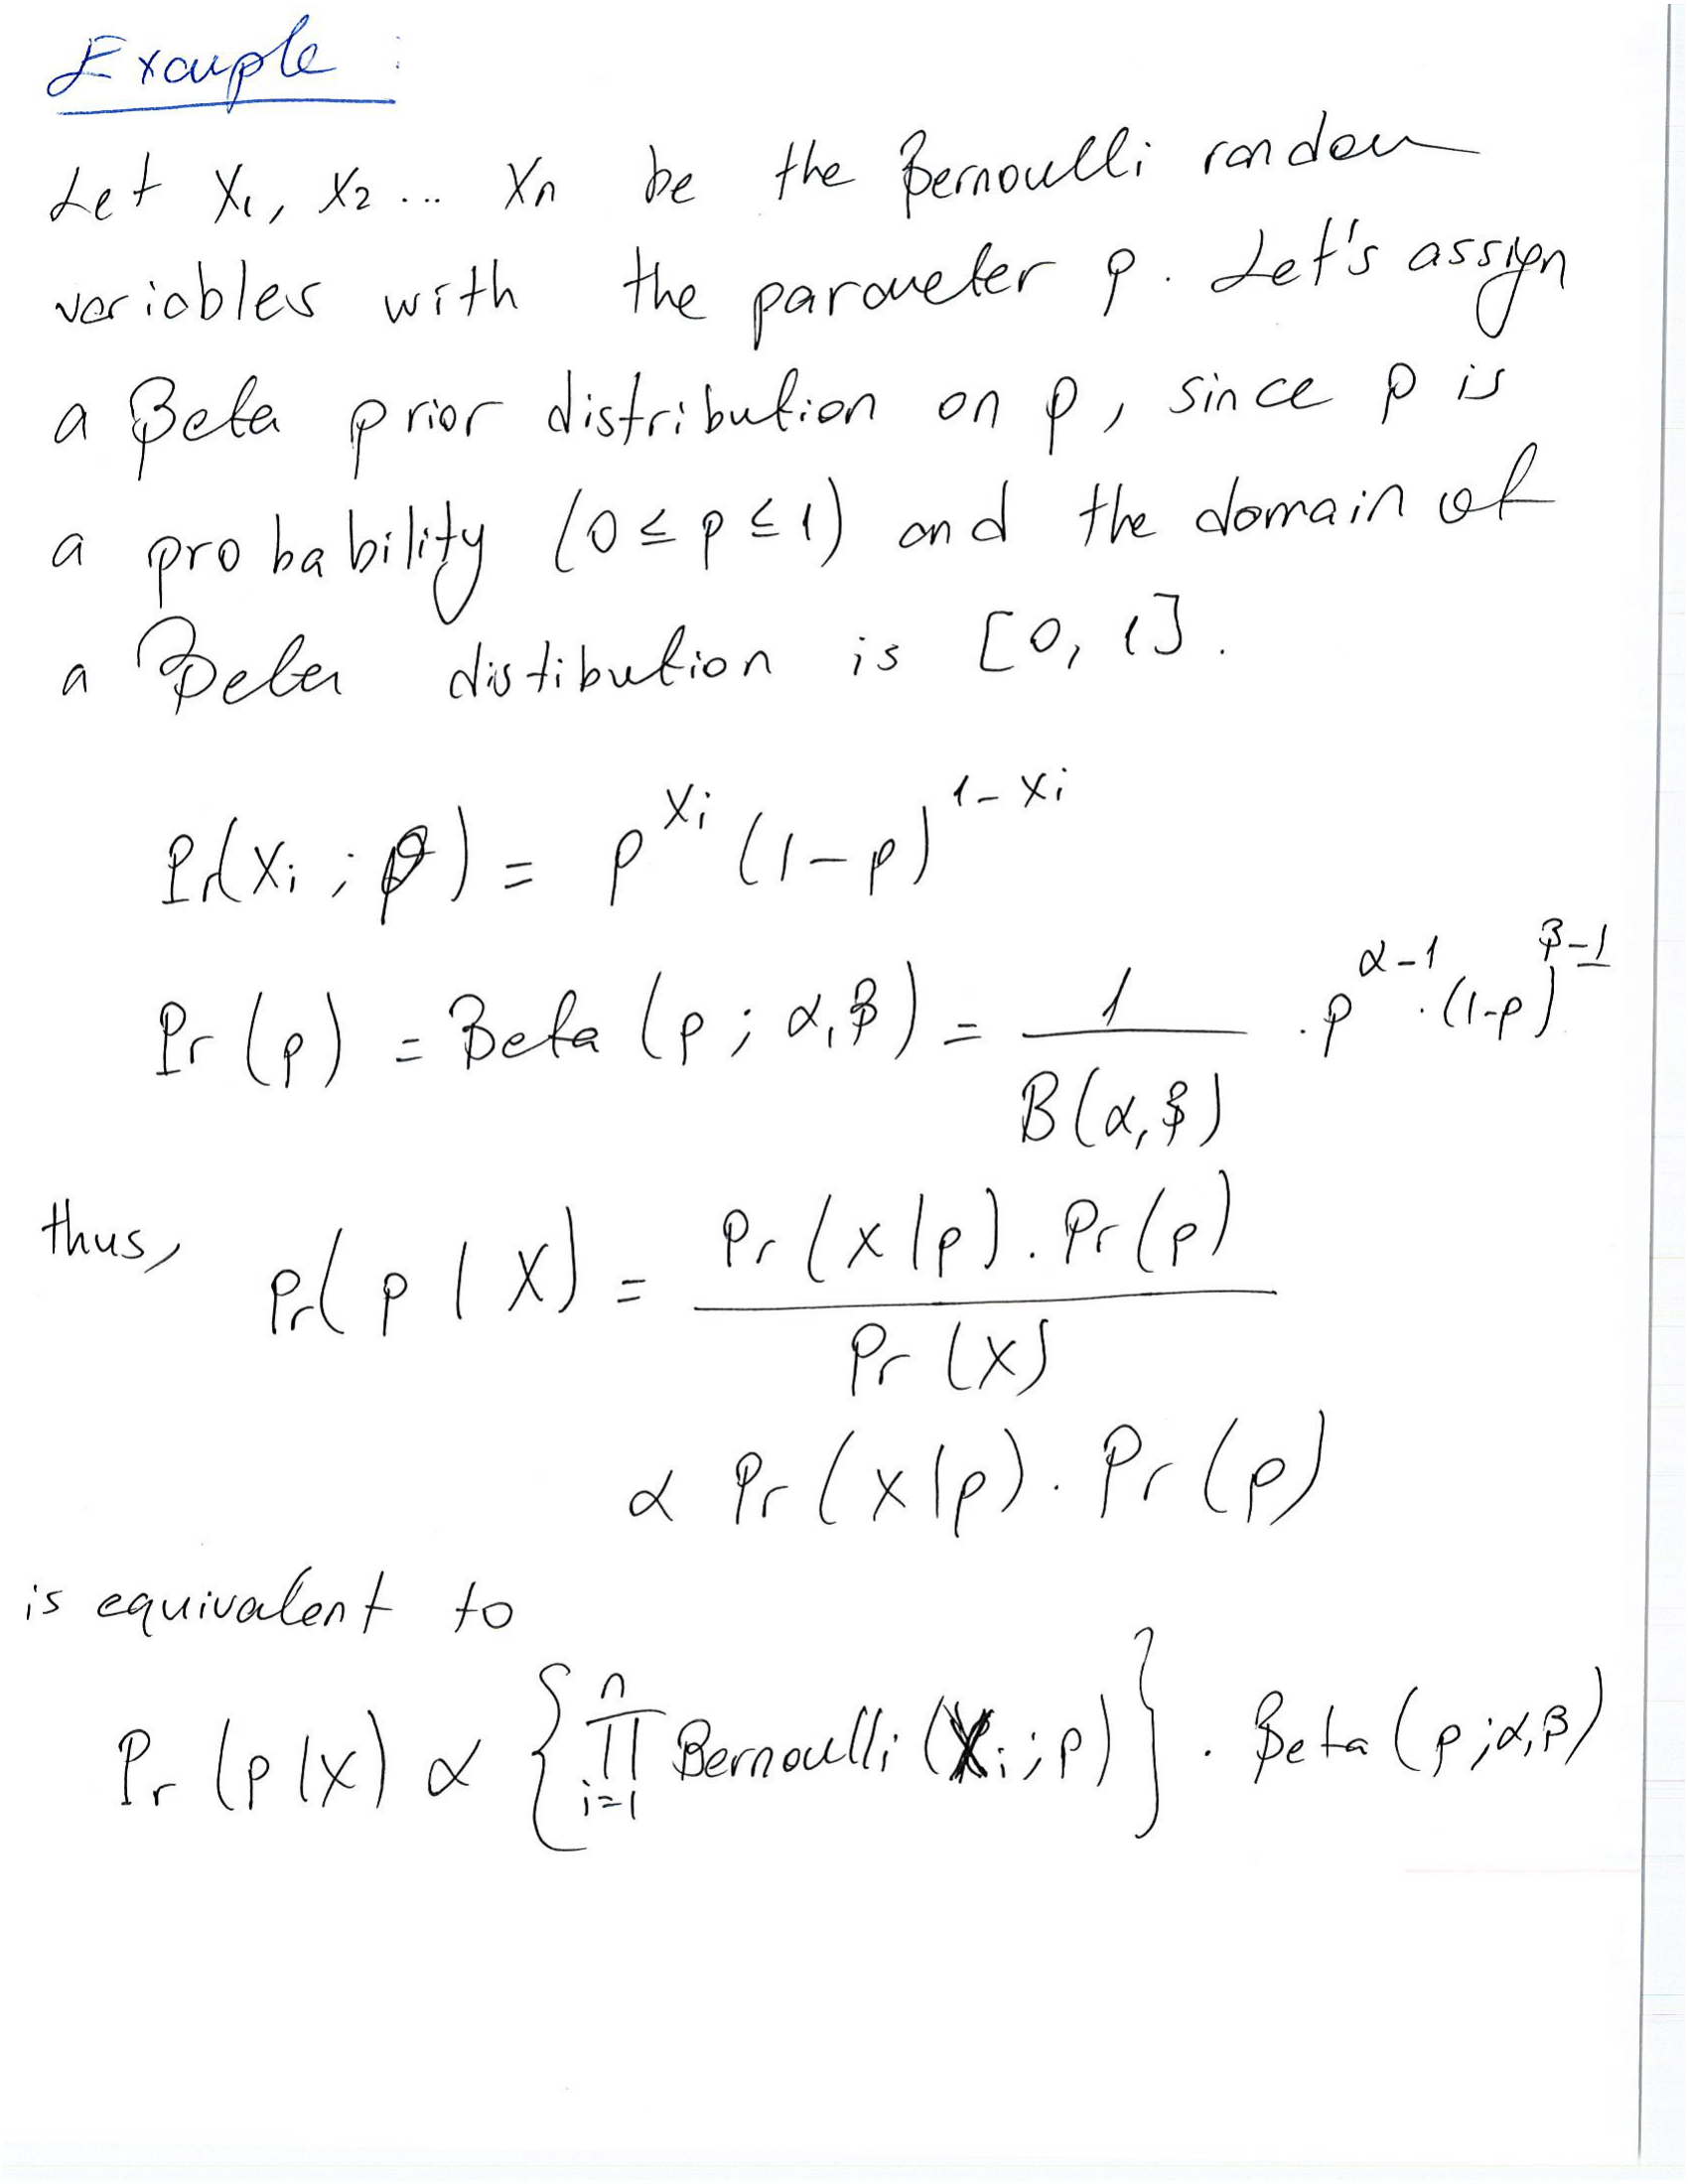 Example :
Let X1, X2 ... Xn be the Bernoulli random
variables with the parameter p. Let's assign
a Beta prior distribution on p, since p is
a probability (0 ≤ p ≤ 1) and the domain of
a Beta distibution is [0, 1].
Pr(Xi ; p) = p^Xi (1-p)^1-Xi
Pr(p) = Beta (p ; α, β) = 1 / B(α, β) . p^α-1 . (1-p)^β-1
thus, Pr(p | X) = Pr(x|p) . Pr(p) / Pr(X)
∝ Pr(x|p) . Pr(p)
is equivalent to
Pr(p|x) ∝ { ∏ i=1 n Bernoulli (Xi ; p) } . Beta (p ; α, β)